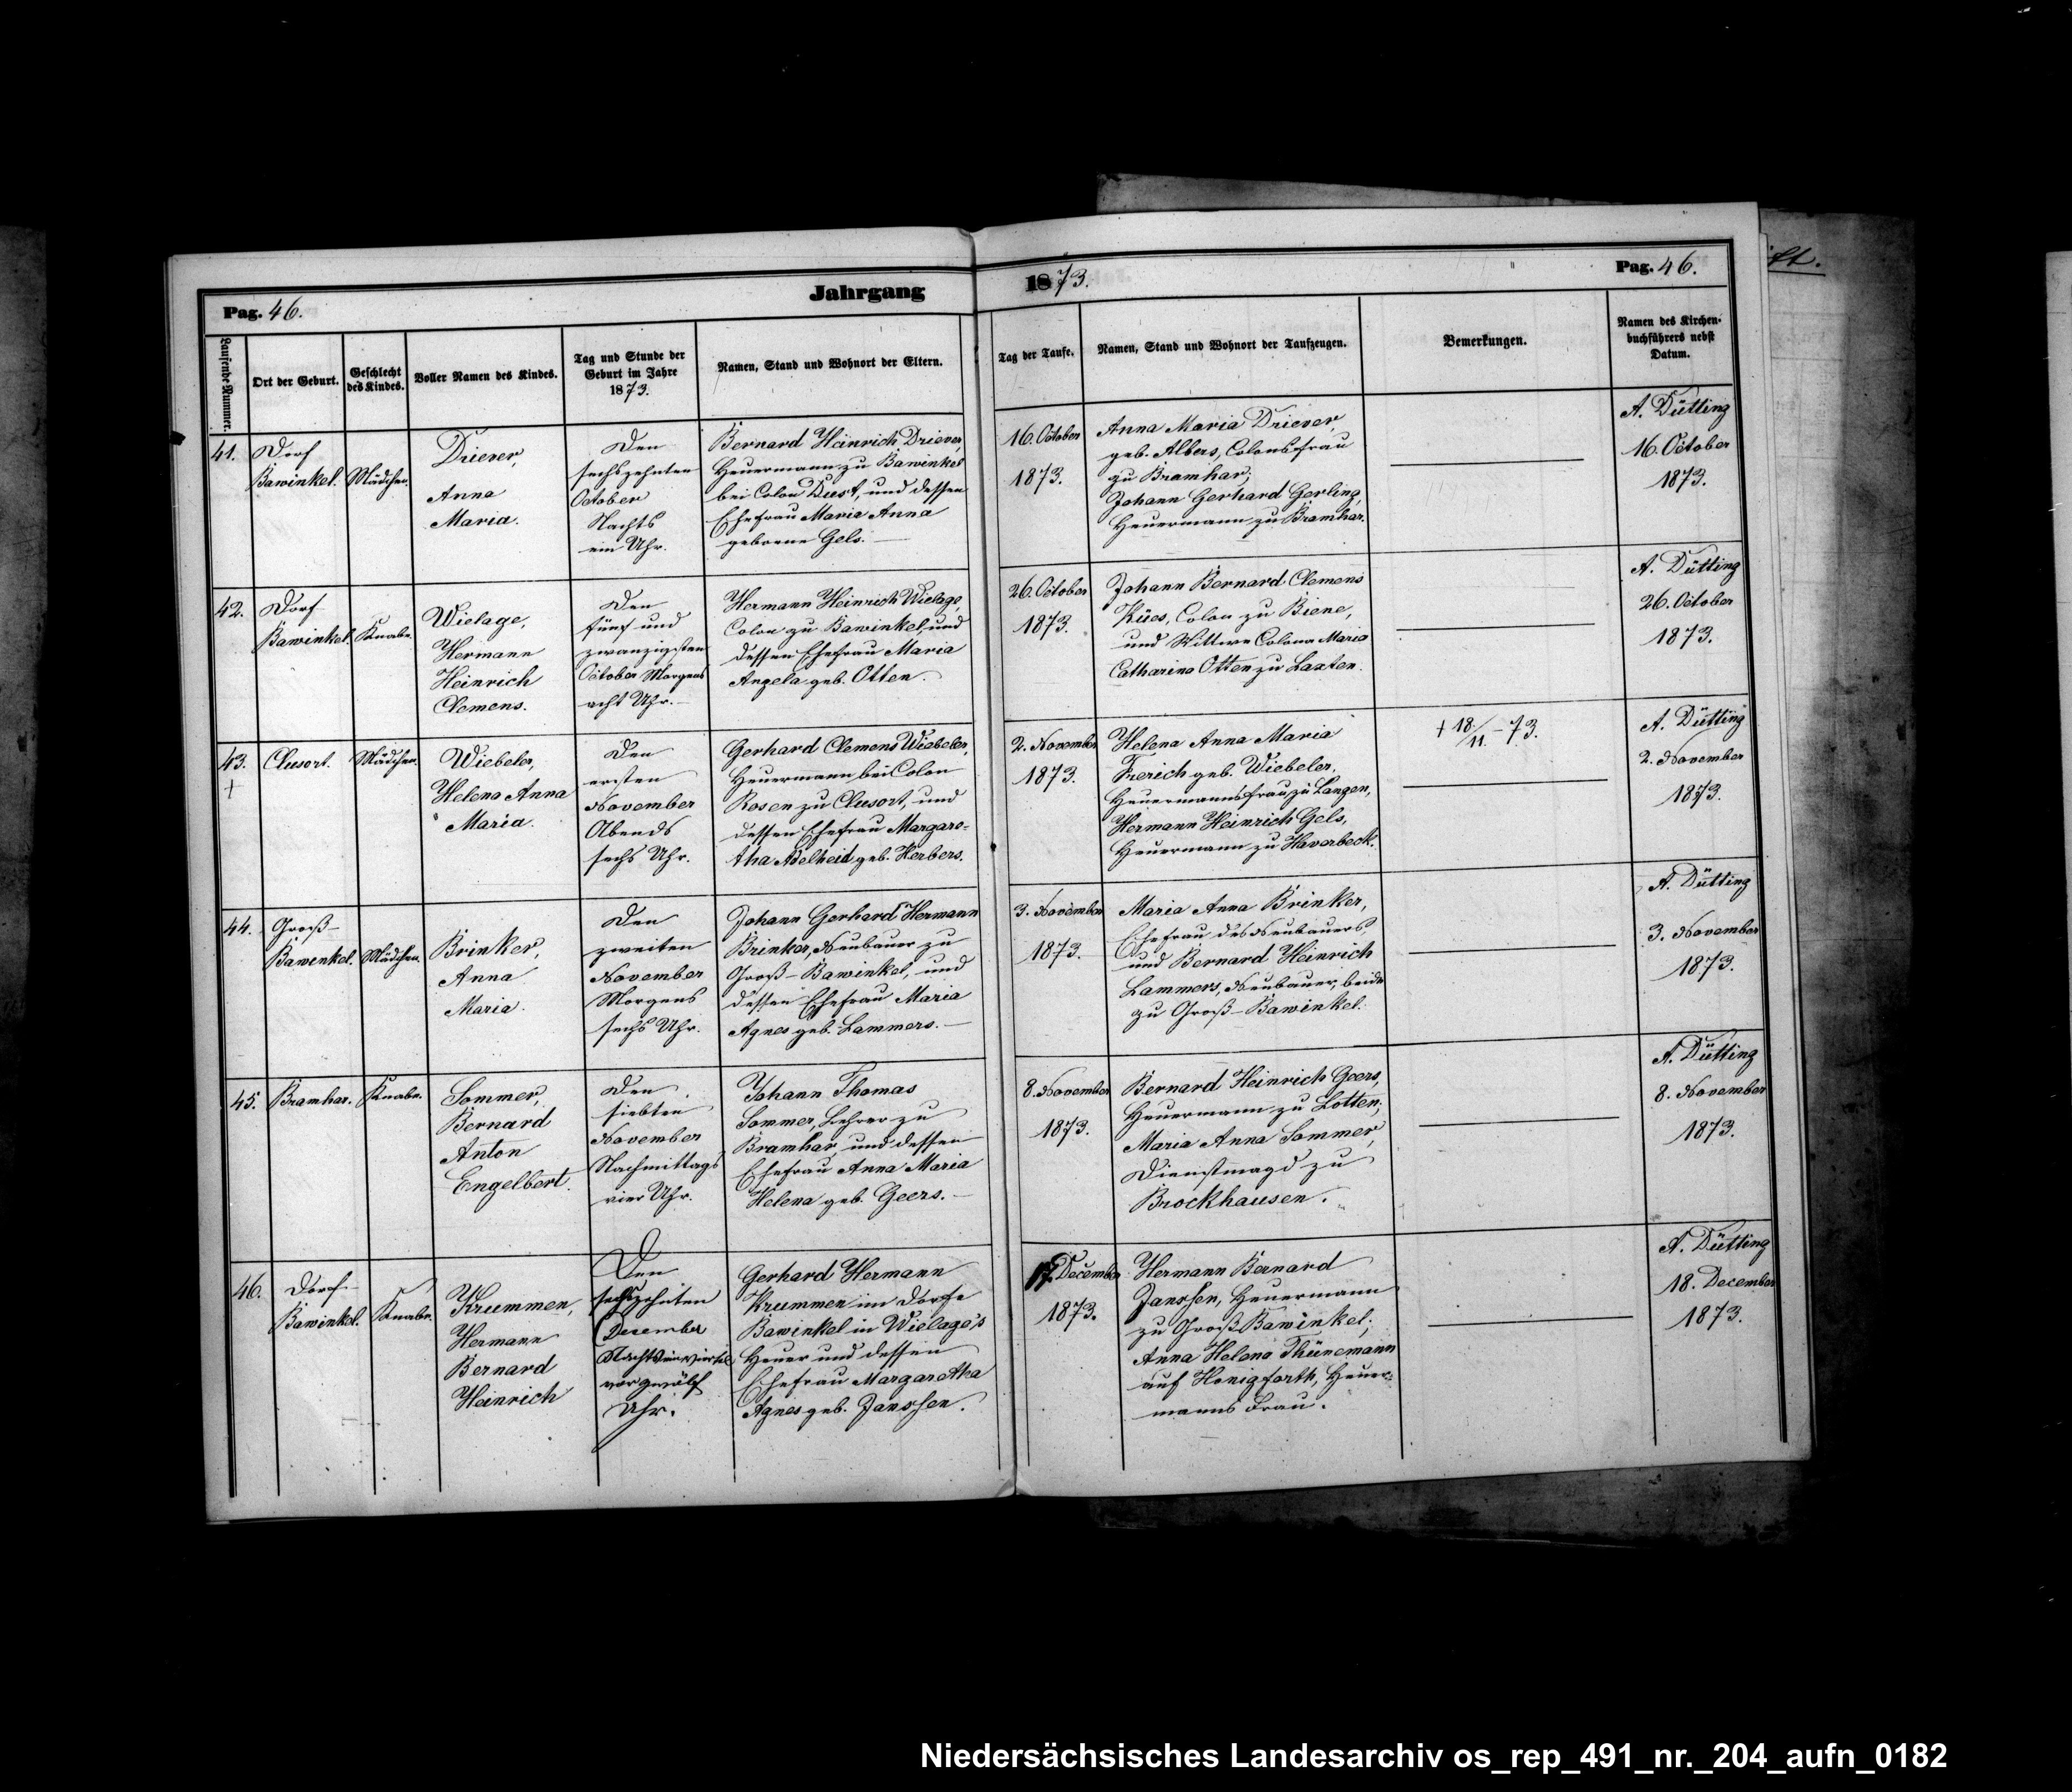 Pag. 46.
Jahrgang
1873.
Pag. 46.
Laufende Nummer.
Ort der Geburt.
Geschlecht
des Kindes.
Voller Namen des Kindes.
Tag und Stunde der
Geburt im Jahre
1873.
Namen, Stand und Wohnort der Eltern.
Tag der Taufe.
Namen, Stand und Wohnort der Taufzeugen.
Bemerkungen.
Namen des Kirchen-
buchführers nebst
Datum.
41.
Dorf
Bawinkel.
Mädchen.
Driever,
Anna
Maria.
Den
sechszehnten
October
Nachts
ein Uhr.
Bernard Heinrich Driever,
Heuermann zu Bawinkel
bei Colon Dust, und dessen
Ehefrau Maria Anna
geborene Gels.
16. October
1873.
Anna Maria Driever,
geb. Albers, Colonsfrau
zu Bramhar;
Johann Gerhard Gerling,
Heuermann zu Bramhar.
A. Dütting
16. October
1873.
42.
Dorf
Bawinkel.
Knabe.
Wielage,
Hermann
Heinrich
Clemens.
Den
fünf und
zwanzigsten
October Morgens
acht Uhr.
Hermann Heinrich Wielage,
Colon zu Bawinkel, und
dessen Ehefrau Maria
Angela geb. Otten.
26. October
1873.
Johann Bernard Clemens
Küес, Colon zu Biene,
und Wittwe Colona Maria
Catharina Otten zu Laxten.
A. Dütting
26. October
1873.
43.
+
Clusort.
Mädchen.
Wiebeler,
Helena Anna
Maria.
Den
ersten
November
Abends
sechs Uhr.
Gerhard Clemens Wiebeler,
Heuermann bei Colon
Rosen zu Clusort, und
dessen Ehefrau Margare-
tha Adelheid geb. Herbers.
2. November
1873.
Helena Anna Maria
Frerich geb. Wiebeler,
Heuermannsfrau zu Langen,
Hermann Heinrich Gels,
Heuermann zu Haverbeck.
+ 18./11. - 73.
A. Dütting
2. November
1873.
44.
Groß-
Bawenkel.
Mädchen.
Brinker,
Anna
Maria.
Den
zweiten
November
Morgens
sechs Uhr.
Johann Gerhard Hermann
Brinker, Neubauer zu
Groß-Bawinkel, und
dessen Ehefrau Maria
Agnes geb. Lammers.
3. November
1873.
Maria Anna Brinker,
Ehefrau des Neubauers,
und Bernard Heinrich
Lammers, Neubauer, beide
zu Groß-Bawinkel.
A. Dütting
3. November
1873.
45.
Bramhar.
Knabe.
Sommer,
Bernard
Anton
Engelbert.
Den
siebten
November
Nachmittags
vier Uhr.
Johann Thomas
Sommer, Lehrer zu
Bramhar, und dessen
Ehefrau Anna Maria
Helena geb. Geers.
8. November
1873.
Bernard Heinrich Geers,
Heuermann zu Lotten;
Maria Anna Sommer,
Dienstmagd zu
Brockhausen.
A. Dütting
8. November
1873.
46.
Dorf-
Bawinkel.
Knabe.
Krummen,
Hermann
Bernard
Heinrich
Den
sechszehnten
December
Nachts ein viertel
vor zwölf
Uhr.
Gerhard Hermann
Krummen im Dorfe
Bawinkel in Wielage's
Heuer und dessen
Ehefrau Margaretha
Agnes geb. Janssen.
17. December
1873.
Hermann Bernard
Janssen, Heuermann
zu Groß Bawinkel;
Anna Helena Thünemann
auf Honigforth, Heuer-
manns Frau.
A. Dütting
18. December
1873.
Niedersächsisches Landesarchiv os_rep_491_nr._204_aufn_0182